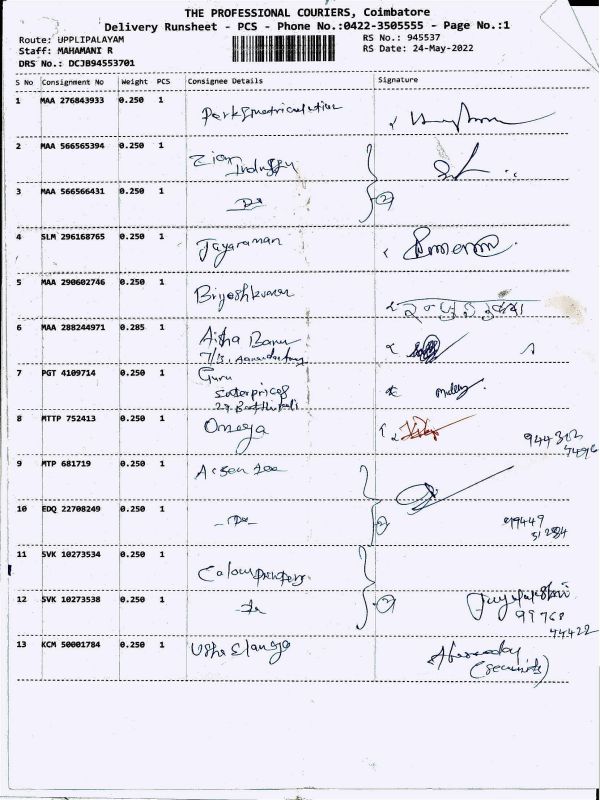 THE PROFESSIONAL COURIERS, Coimbatore
Delivery Runsheet - PCS - Phone No.:0422-3505555 - Page No.:1
Route: UPPLIPALAYAM
RS No.: 945537
Staff: MAHAMANI R
RS Date: 24-May-2022
DRS No.: DCJB94553701
S No Consignment No Weight PCS Consignee Details Signature
1 MAA 276843933 0.250 1
2 MAA 566565394 0.250 1 Zion
Industry
3 MAA 566566431 0.250 1 Do 2
4 SLM 296168765 0.250 1 Jayaraman
5 MAA 290602746 0.250 1 Brijeshkumar
6 MAA 288244971 0.285 1 Aisha Banu
7 PGT 4109714 0.250 1 Guru
Enterprices
8 MTTP 752413 0.250 1 Omega
9 MTP 681719 0.250 1
10 EDQ 22708249 0.250 1 Do 2
99449
11 SVK 10273534 0.250 1
12 SVK 10273538 0.250 1 Do 2
99768
74422
13 KCM 50001784 0.250 1 Usha Elango
(Security)